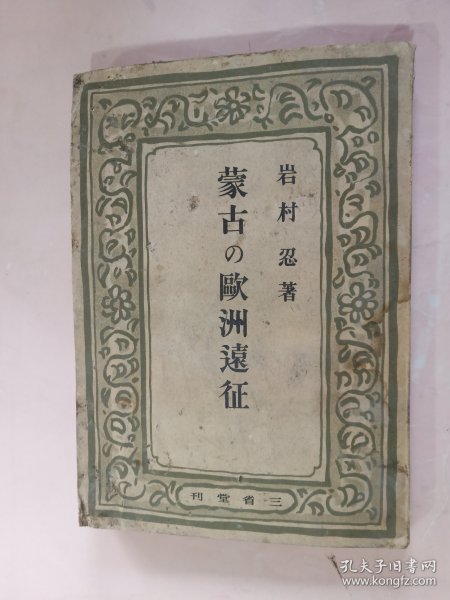 岩村忍著
蒙古の歐洲遠征
三省堂刊
孔夫子旧书网
www.kongfz.com